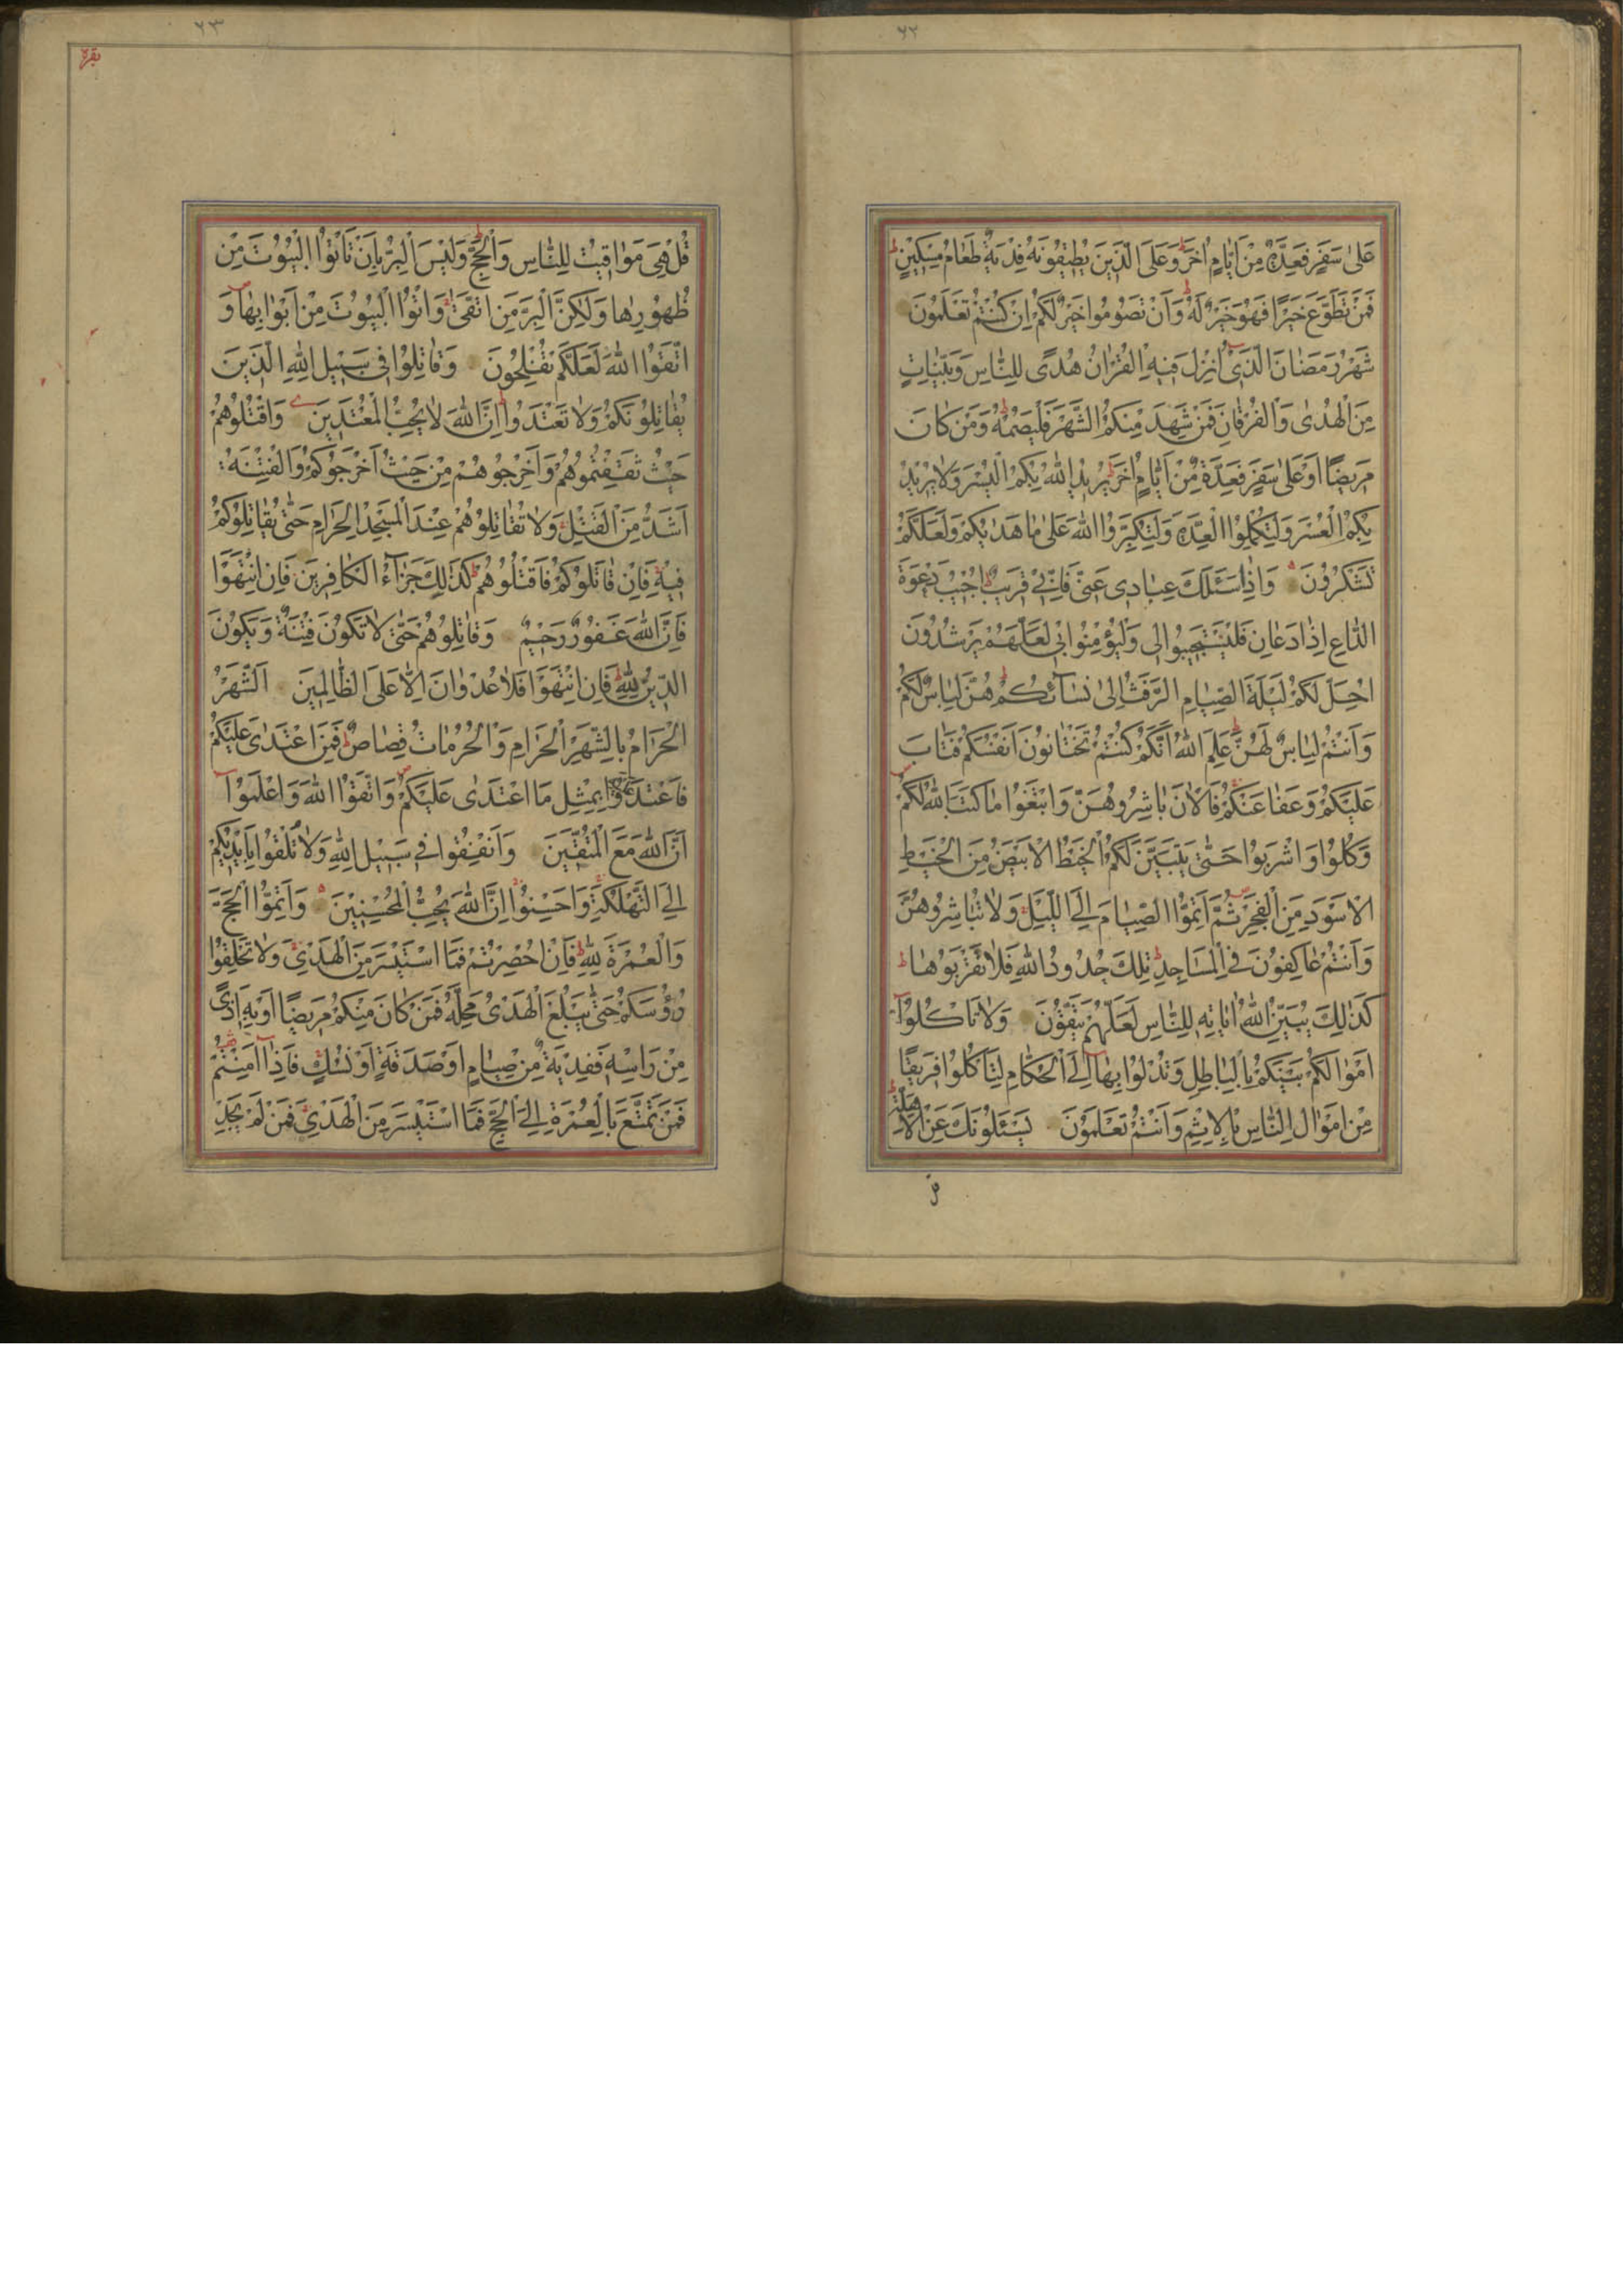 ٦٢
عَلىٰ سَفَرٍ فَعِدَّةٌ مِنْ اَيّٰامٍ اُخَرَ وَعَلَى الَّذينَ يُطيقُونَهُ فِدْيَةٌ طَعٰامُ مِسْكينٍ
فَمَنْ تَطَوَّعَ خَيْرًا فَهُوَ خَيْرٌ لَهُ وَاَنْ تَصُومُوا خَيْرٌ لَكُمْ اِنْ كُنْتُمْ تَعْلَمُونَ
شَهْرُ رَمَضٰانَ الَّذى اُنْزِلَ فيهِ الْقُرْاٰنُ هُدًى لِلنّٰاسِ وَبَيِّنٰاتٍ
مِنَ الْهُدٰى وَالْفُرْقٰانِ فَمَنْ شَهِدَ مِنْكُمُ الشَّهْرَ فَلْيَصُمْهُ وَمَنْ كٰانَ
مَريضًا اَوْ عَلىٰ سَفَرٍ فَعِدَّةٌ مِنْ اَيّٰامٍ اُخَرَ يُريدُ اللّٰهُ بِكُمُ الْيُسْرَ وَلٰا يُريدُ
بِكُمُ الْعُسْرَ وَلِتُكْمِلُوا الْعِدَّةَ وَلِتُكَبِّرُوا اللّٰهَ عَلىٰ مٰا هَدٰيكُمْ وَلَعَلَّكُمْ
تَشْكُرُونَ وَاِذٰا سَئَلَكَ عِبٰادى عَنّى فَاِنّى قَريبٌ اُجيبُ دَعْوَةَ
الدّٰاعِ اِذٰا دَعٰانِ فَلْيَسْتَجيبُوا لى وَلْيُؤْمِنُوا بى لَعَلَّهُمْ يَرْشُدُونَ
اُحِلَّ لَكُمْ لَيْلَةَ الصِّيٰامِ الرَّفَثُ اِلىٰ نِسٰائِكُمْ هُنَّ لِبٰاسٌ لَكُمْ
وَاَنْتُمْ لِبٰاسٌ لَهُنَّ عَلِمَ اللّٰهُ اَنَّكُمْ كُنْتُمْ تَخْتٰانُونَ اَنْفُسَكُمْ فَتٰابَ
عَلَيْكُمْ وَعَفٰا عَنْكُمْ فَالْاٰنَ بٰاشِرُوهُنَّ وَابْتَغُوا مٰا كَتَبَ اللّٰهُ لَكُمْ
وَكُلُوا وَاشْرَبُوا حَتّٰى يَتَبَيَّنَ لَكُمُ الْخَيْطُ الْاَبْيَضُ مِنَ الْخَيْطِ
الْاَسْوَدِ مِنَ الْفَجْرِ ثُمَّ اَتِمُّوا الصِّيٰامَ اِلَى اللَّيْلِ وَلٰا تُبٰاشِرُوهُنَّ
وَاَنْتُمْ عٰاكِفُونَ فِى الْمَسٰاجِدِ تِلْكَ حُدُودُ اللّٰهِ فَلٰا تَقْرَبُوهٰا
كَذٰلِكَ يُبَيِّنُ اللّٰهُ اٰيٰاتِهِ لِلنّٰاسِ لَعَلَّهُمْ يَتَّقُونَ وَلٰا تَاْكُلُوا
اَمْوٰالَكُمْ بَيْنَكُمْ بِالْبٰاطِلِ وَتُدْلُوا بِهٰا اِلَى الْحُكّٰامِ لِتَاْكُلُوا فَريقًا
مِنْ اَمْوٰالِ النّٰاسِ بِالْاِثْمِ وَاَنْتُمْ تَعْلَمُونَ يَسْئَلُونَكَ عَنِ الْاَهِلَّةِ
٦٣
بقره
قُلْ هِىَ مَوٰاقيتُ لِلنّٰاسِ وَالْحَجِّ وَلَيْسَ الْبِرُّ بِاَنْ تَاْتُوا الْبُيُوتَ مِنْ
ظُهُورِهٰا وَلٰكِنَّ الْبِرَّ مَنِ اتَّقىٰ وَاْتُوا الْبُيُوتَ مِنْ اَبْوٰابِهٰا وَ
اتَّقُوا اللّٰهَ لَعَلَّكُمْ تُفْلِحُونَ وَقٰاتِلُوا فى سَبيلِ اللّٰهِ الَّذينَ
يُقٰاتِلُونَكُمْ وَلٰا تَعْتَدُوا اِنَّ اللّٰهَ لٰا يُحِبُّ الْمُعْتَدينَ وَاقْتُلُوهُمْ
حَيْثُ ثَقِفْتُمُوهُمْ وَاَخْرِجُوهُمْ مِنْ حَيْثُ اَخْرَجُوكُمْ وَالْفِتْنَةُ
اَشَدُّ مِنَ الْقَتْلِ وَلٰا تُقٰاتِلُوهُمْ عِنْدَ الْمَسْجِدِ الْحَرٰامِ حَتّٰى يُقٰاتِلُوكُمْ
فيهِ فَاِنْ قٰاتَلُوكُمْ فَاقْتُلُوهُمْ كَذٰلِكَ جَزٰاءُ الْكٰافِرينَ فَاِنِ انْتَهَوْا
فَاِنَّ اللّٰهَ غَفُورٌ رَحيمٌ وَقٰاتِلُوهُمْ حَتّٰى لٰا تَكُونَ فِتْنَةٌ وَيَكُونَ
الدّينُ لِلّٰهِ فَاِنِ انْتَهَوْا فَلٰا عُدْوٰانَ اِلّٰا عَلَى الظّٰالِمينَ اَلشَّهْرُ
الْحَرٰامُ بِالشَّهْرِ الْحَرٰامِ وَالْحُرُمٰاتُ قِصٰاصٌ فَمَنِ اعْتَدٰى عَلَيْكُمْ
فَاعْتَدُوا عَلَيْهِ بِمِثْلِ مَا اعْتَدٰى عَلَيْكُمْ وَاتَّقُوا اللّٰهَ وَاعْلَمُوا
اَنَّ اللّٰهَ مَعَ الْمُتَّقينَ وَاَنْفِقُوا فى سَبيلِ اللّٰهِ وَلٰا تُلْقُوا بِاَيْديكُمْ
اِلَى التَّهْلُكَةِ وَاَحْسِنُوا اِنَّ اللّٰهَ يُحِبُّ الْمُحْسِنينَ وَاَتِمُّوا الْحَجَّ
وَالْعُمْرَةَ لِلّٰهِ فَاِنْ اُحْصِرْتُمْ فَمَا اسْتَيْسَرَ مِنَ الْهَدْىِ وَلٰا تَحْلِقُوا
رُؤُسَكُمْ حَتّٰى يَبْلُغَ الْهَدْىُ مَحِلَّهُ فَمَنْ كٰانَ مِنْكُمْ مَريضًا اَوْ بِهِ اَذًى
مِنْ رَاْسِهِ فَفِدْيَةٌ مِنْ صِيٰامٍ اَوْ صَدَقَةٍ اَوْ نُسُكٍ فَاِذٰا اَمِنْتُمْ
فَمَنْ تَمَتَّعَ بِالْعُمْرَةِ اِلَى الْحَجِّ فَمَا اسْتَيْسَرَ مِنَ الْهَدْىِ فَمَنْ لَمْ يَجِدْ